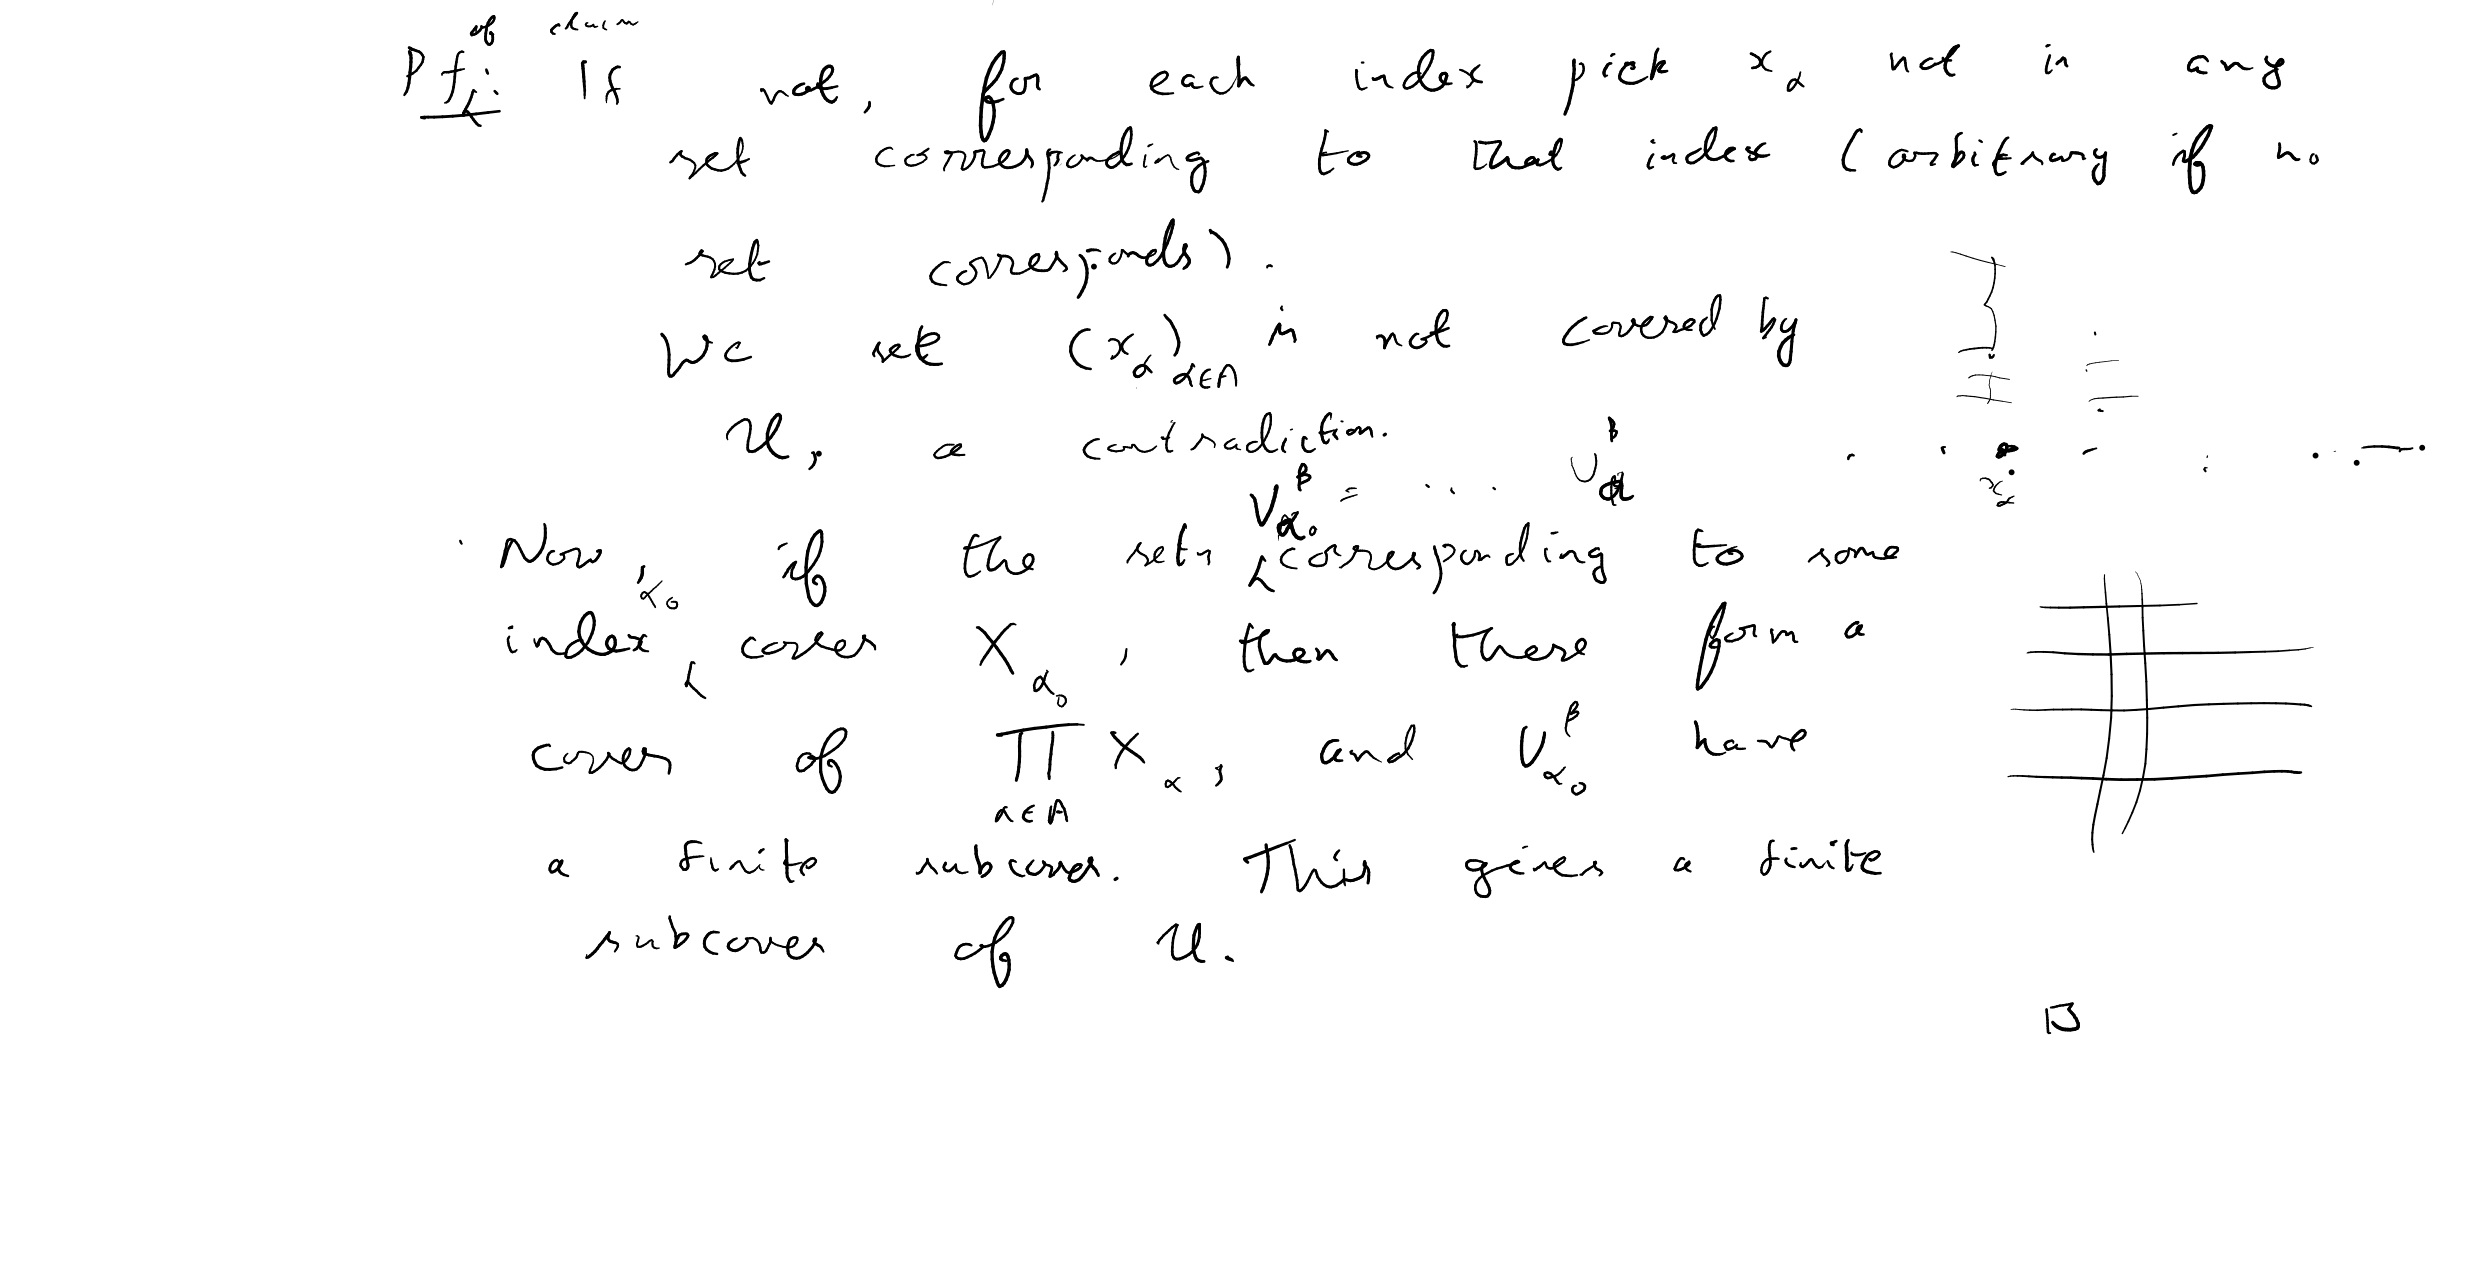 of claim
Pf: If not, for each index pick x_α not in any
set corresponding to that index (arbitrary if no
set corresponds).
We set (x_α)_{α∈A} is not covered by
𝒰, a contradiction.
V_{α_0}^β = .... U_α^β
Now, if the sets corresponding to some
index α_0 covers X_{α_0}, then these form a
cover of ∏_{α∈A} X_α, and U_{α_0}^β have
a finite subcover. This gives a finite
subcover of 𝒰.
x_α